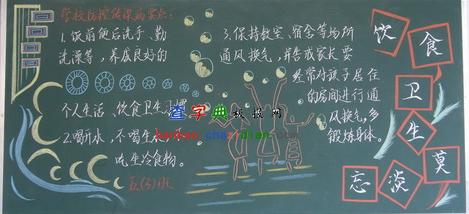 学校防控传染病要点：
1.饭前便后洗手、勤
洗澡等，养成良好的
个人生活、饮食卫生习惯
2.喝开水，不喝生水
吃生冷食物。
五(3)班
3.保持教室、宿舍等场所
通风换气，并告戒家长要
经常对孩子居住
的房间进行通
风换气，多
锻炼身体。
饮食
卫
生
莫
淡
忘
查字典板报网
banbao.chazidian.com